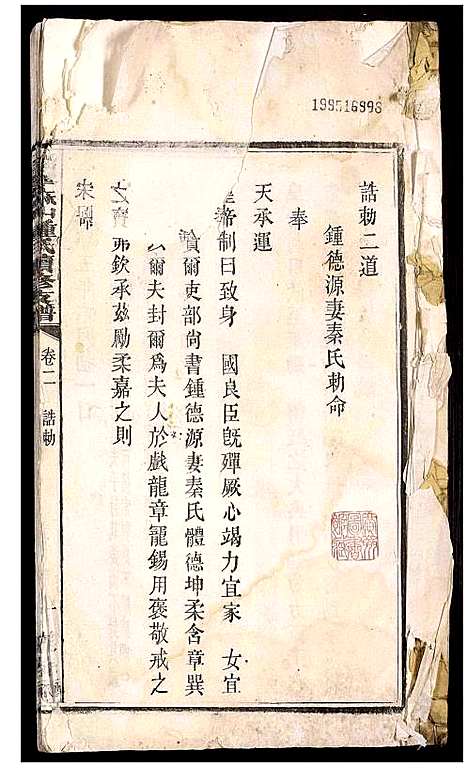 199516996
誥勅二道
鍾德源妻秦氏勅命
奉
天承運
皇帝制曰致身 國良臣旣殫厥心竭力宜家 女宜
爾吏部尚書鍾德源妻秦氏體德坤柔含章巽
爾夫封爾爲夫人於戲龍章寵錫用褒敬戒之
欽承茲勵柔嘉之則
之寶
鍾氏續修支譜
卷二 誥勅